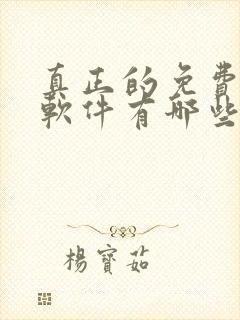 真正的免費
軟件有哪些
楊寶茹